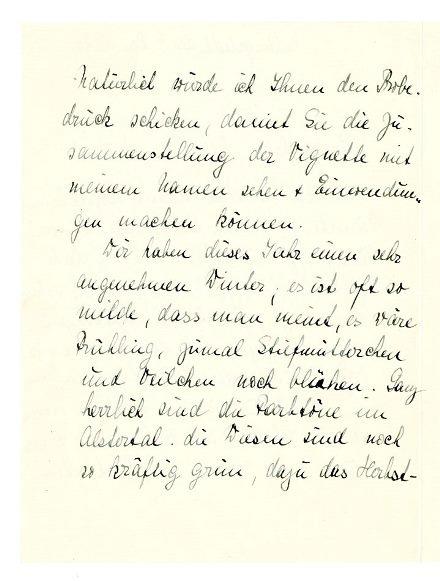 Natürlich würde ich Ihnen den Probe-
druck schicken, damit Sie die Zu-
sammenstellung der Vignette mit
meinem Namen sehen + Einwendun-
gen machen können.
Wir haben dieses Jahr einen sehr
angenehmen Winter, es ist oft so
milde, dass man meint, es wäre
Frühling, zumal Stiefmütterchen
und Veilchen noch blühen. Ganz
herrlich sind die Farbtöne im
Alstertal. die Wiesen sind noch
so kräftig grün, dazu das Herbst-